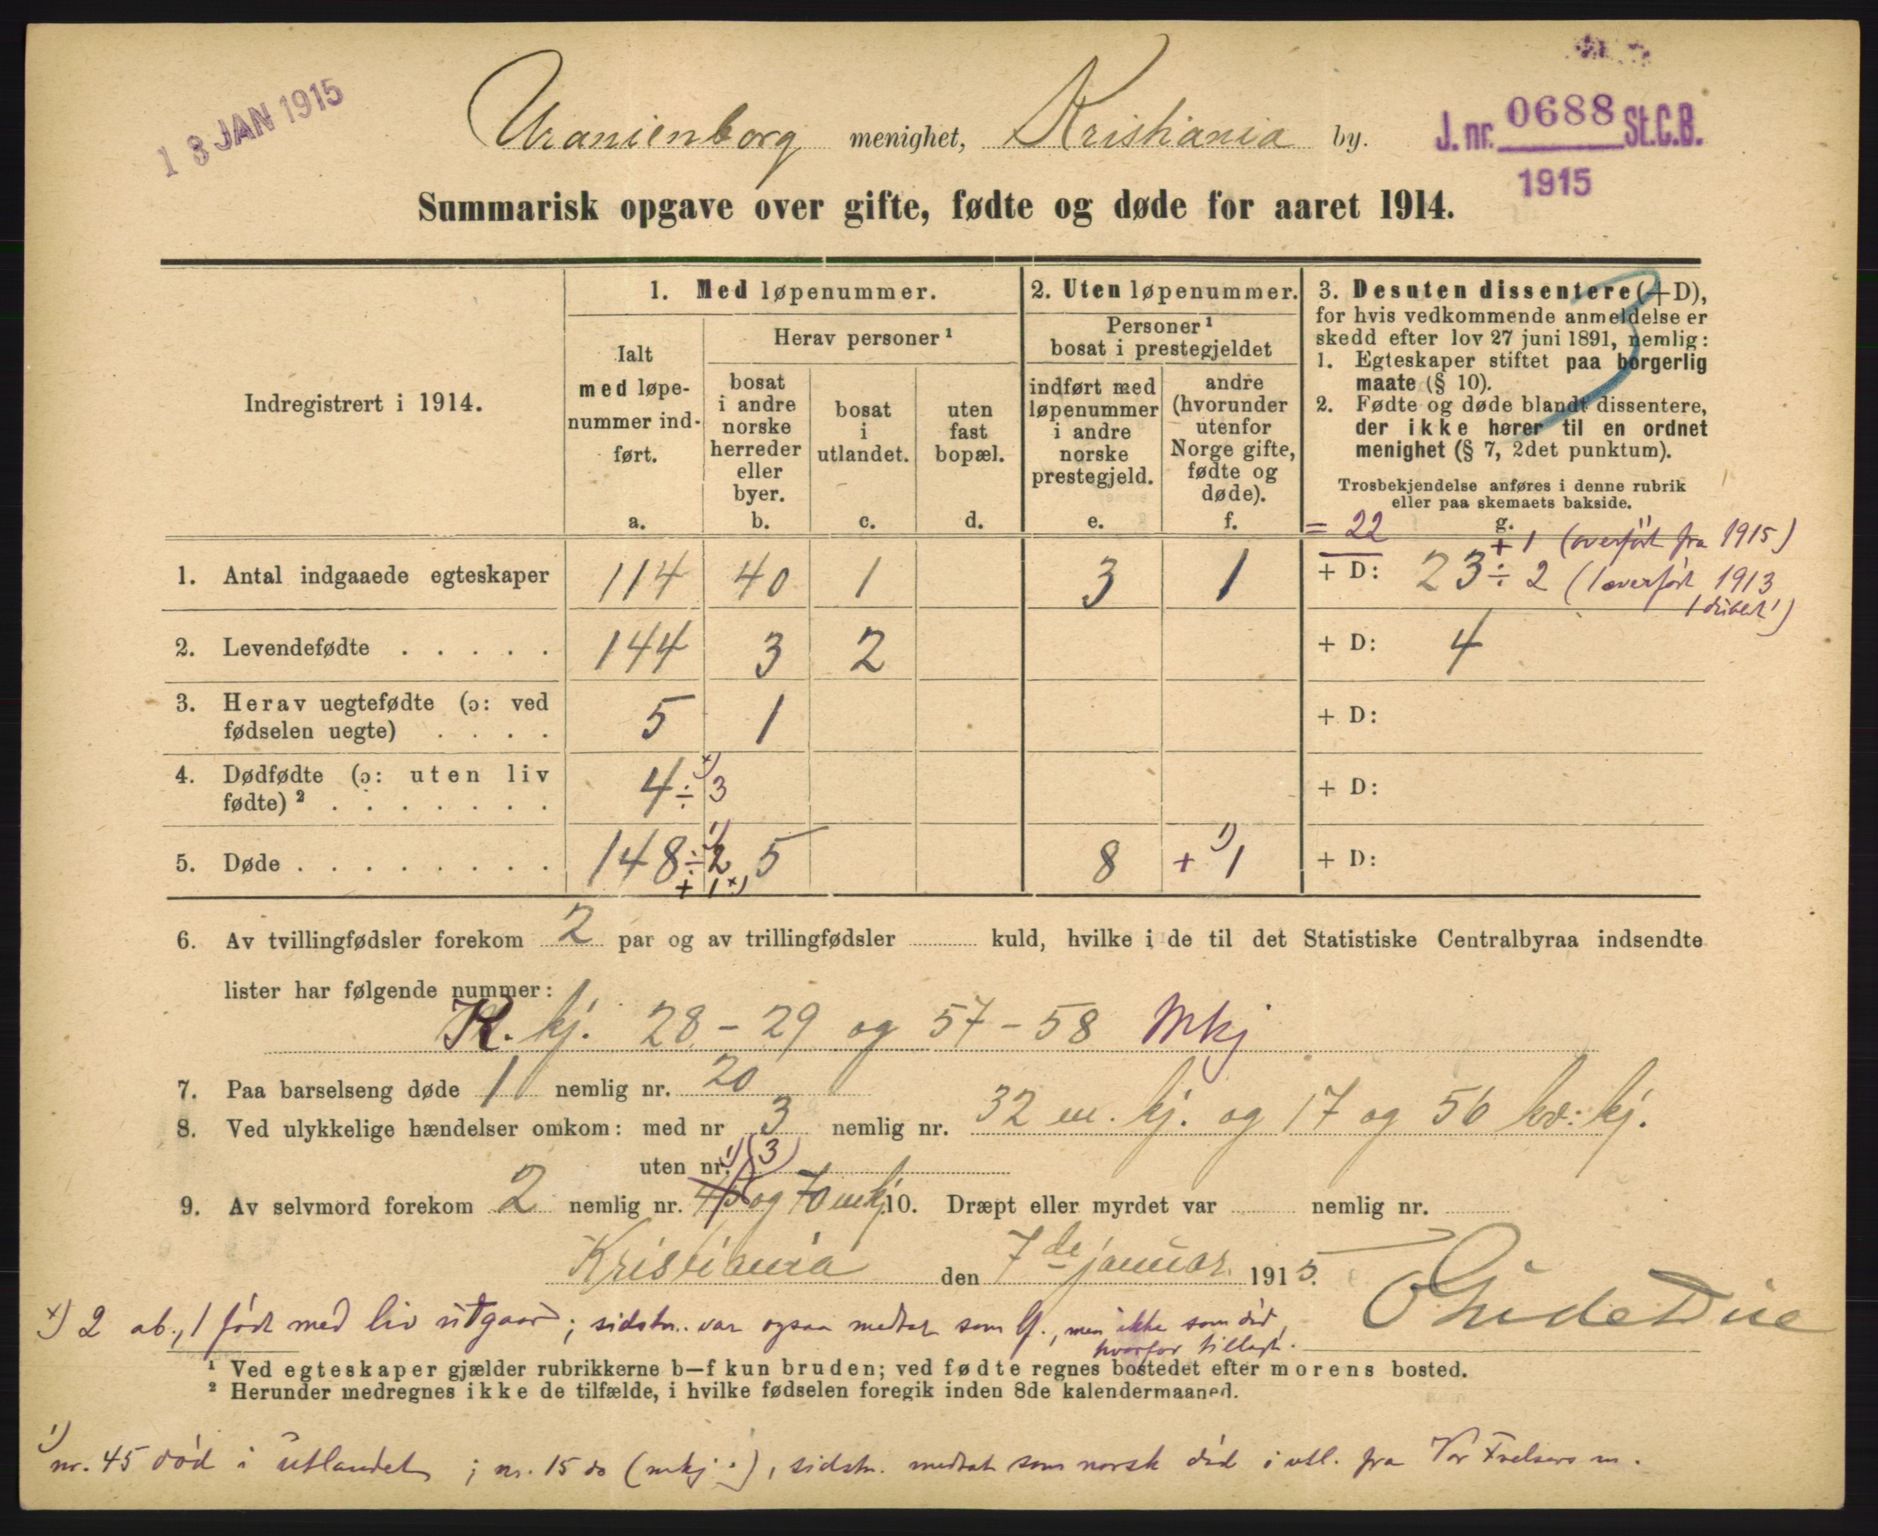 18 JAN 1915
Uranienborg menighet, Kristiania by.
J. nr. 0688 St.C.B.
1915
Summarisk opgave over gifte, fødte og døde for aaret 1914.
Indregistrert i 1914.
1. Med løpenummer.
Ialt
med løpe-
nummer ind-
ført.
a.
Herav personer ¹
bosat
i andre
norske
herreder
eller
byer.
b.
bosat
i
utlandet.
c.
uten
fast
bopæl.
d.
2. Uten løpenummer.
Personer ¹
bosat i prestegjeldet
indført med
løpenummer
i andre
norske
prestegjeld.
e.
andre
(hvorunder
utenfor
Norge gifte,
fødte og
døde).
f.
3. Desuten dissentere (+D),
for hvis vedkommende anmeldelse er
skedd efter lov 27 juni 1891, nemlig:
1. Egteskaper stiftet paa borgerlig
maate (§ 10).
2. Fødte og døde blandt dissentere,
der ikke hører til en ordnet
menighet (§ 7, 2det punktum).
Trosbekjendelse anføres i denne rubrik
eller paa skemaets bakside.
g.
= 22 + 1 (overført fra 1915)
1. Antal indgaaede egteskaper 114 40 1 3 1 + D: 23 ÷ 2 (1 overført 1913
2. Levendefødte . . . . . 144 3 2 + D: 4
3. Herav uegtefødte (ɔ: ved
fødselen uegte) . . . . 5 1 + D:
4. Dødfødte (ɔ: uten liv
fødte) ² . . . . . . . 4 ÷ 3 x) + D:
5. Døde . . . . . . . . 148 ÷ 2 1) + 1 x) 5 8 + 1 1) + D:
6. Av tvillingfødsler forekom 2 par og av trillingfødsler kuld, hvilke i de til det Statistiske Centralbyraa indsendte
lister har følgende nummer:
K. kj. 28 – 29 og 57 – 58 Mkj
7. Paa barselseng døde 1 nemlig nr. 20
8. Ved ulykkelige hændelser omkom: med nr 3 nemlig nr. 32 m. kj. og 17 og 56 kv. kj.
uten nr. 1) (3)
9. Av selvmord forekom 2 nemlig nr. 45 og 70 mkj 10. Dræpt eller myrdet var nemlig nr.
Kristiania den 7de januar 1915.
x) 2 ab., 1 født med liv utgaar; sidstn. var ogsaa medtat som lf., men ikke som död,
hvorfor tillagt.
¹ Ved egteskaper gjælder rubrikkerne b–f kun bruden; ved fødte regnes bostedet efter morens bosted.
² Herunder medregnes ikke de tilfælde, i hvilke fødselen foregik inden 8de kalendermaaned.
1) nr. 45 död i utlandet; nr. 15 do (mkj.), sidstn. medtat som norsk död i utl. fra Vor Frelsers m.